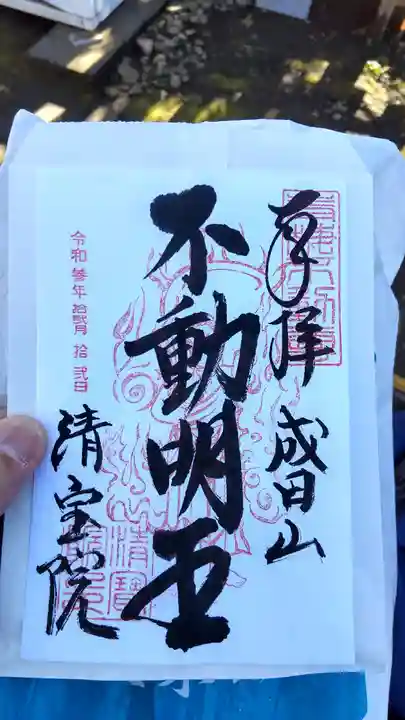 奉拝 成田山
不動明王
令和参年拾弐月拾弐日
清宝院